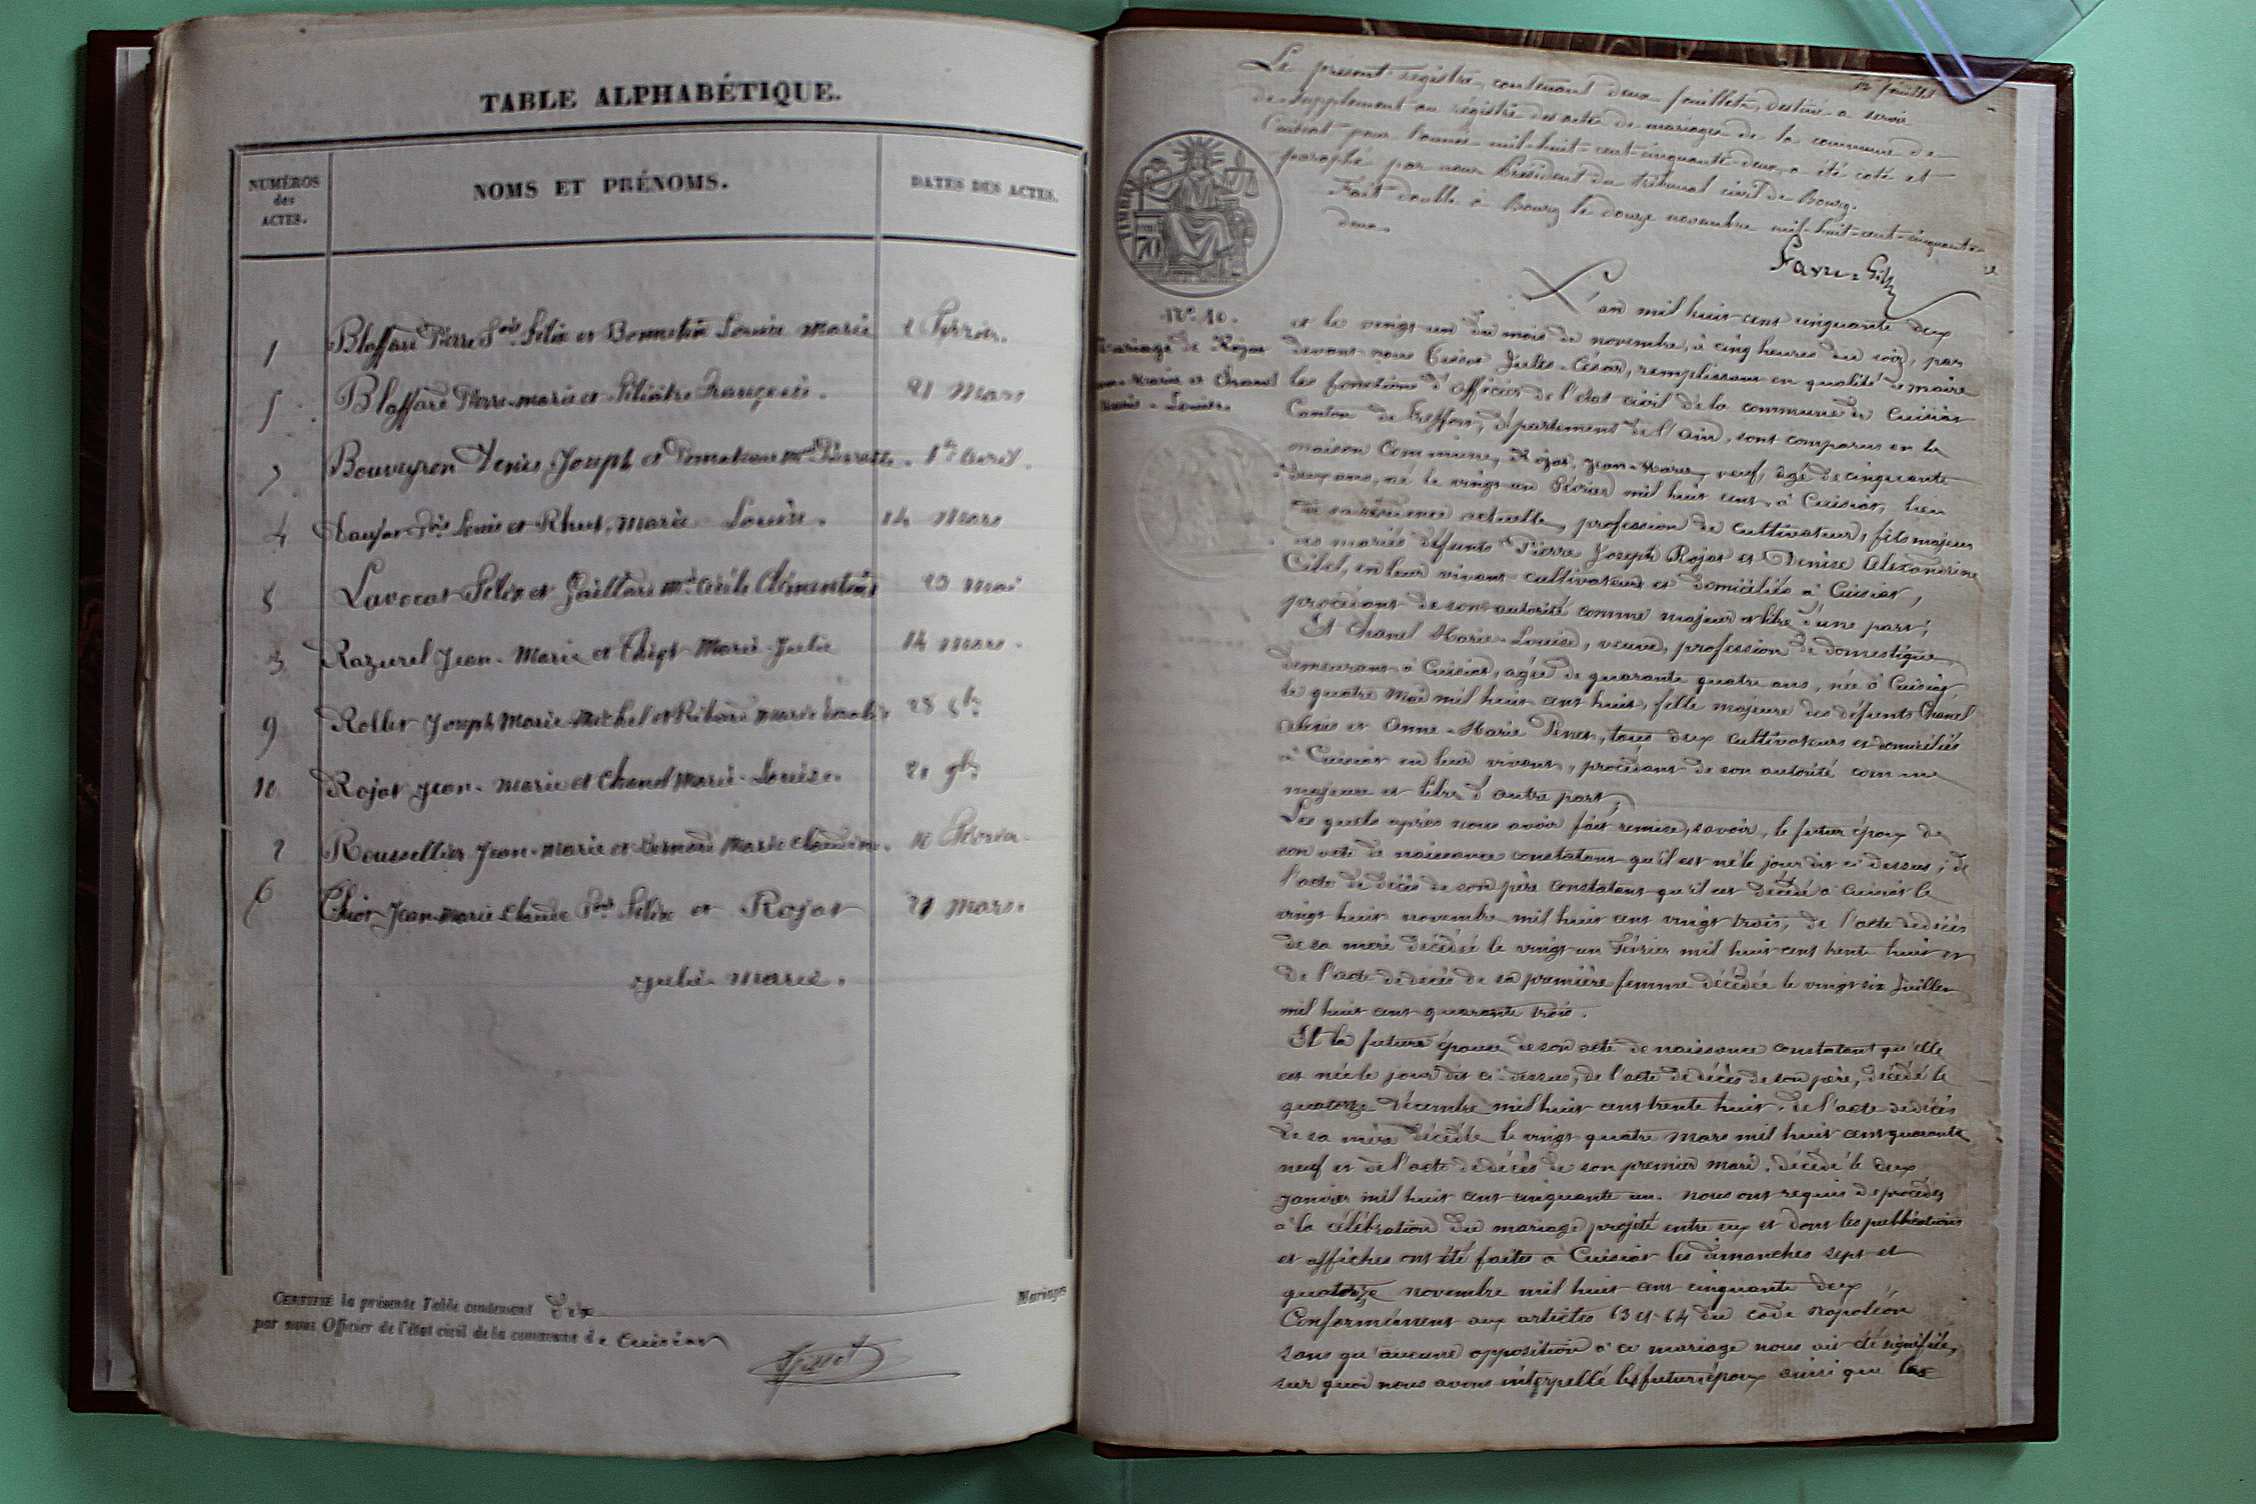 TABLE ALPHABÉTIQUE.
NUMÉROS
des
ACTES.
NOMS ET PRÉNOMS.
DATES DES ACTES.
1 Blaffard Pierre Félix et Louise Marie
5 Blaffard Pierre-Marie et Françoise. 21 Mars
7 Bouveyron Denis Joseph et 1er Avril.
4 Louis et Marie Louise. 14 Mars
8 Lavocat Félix et Gaillard Cécile Clémentine 20 Mai
3 Razurel Jean-Marie et Marie Julie 14 Mars.
9 Rollet Joseph Marie Michel et Marie 28
10 Rojat Jean-Marie et Chanel Marie-Louise. 21 9bre
2 Roussellier Jean-Marie et Bernard Marie Claudine. 10 Février
6 Jean-Marie Claude Félix et Rojat 21 Mars.
Julie Marie.
CERTIFIÉ la présente Table contenant dix Mariages
par nous Officier de l'état civil de la commune de Cuisiat
Le présent registre, contenant deux feuillets, destiné à servir
de supplément au registre des actes de mariages de la commune de
Cuisiat pour l'année mil-huit-cent-cinquante-deux, a été coté et
paraphé par nous Président du tribunal civil de Bourg.
Fait double à Bourg le douze novembre mil-huit-cent-cinquante-
deux.
TIMBRE
70
N° 10.
Mariage de Rojat
Jean-Marie et Chanel
Marie-Louise.
L'an mil huit cent cinquante deux
et le vingt-un du mois de novembre, à cinq heures du soir, par
devant nous Jules-César, remplissant en qualité de maire
les fonctions d'officier de l'état civil de la commune de Cuisiat
Canton de Treffort, département de l'Ain, sont comparus en la
maison Commune, Rojat, Jean-Marie, veuf, âgé de cinquante
deux ans, né le vingt-un Février mil huit cent, à Cuisiat, lieu
de sa résidence actuelle, profession de cultivateur, fils majeur
des mariés défunts Pierre Joseph Rojat et Denise Alexandrine
en leur vivant cultivateurs et domiciliés à Cuisiat,
procédant de son autorité comme majeur et libre d'une part;
Et Chanel Marie-Louise, veuve, profession de domestique,
demeurant à Cuisiat, agée de quarante quatre ans, née à Cuisiat,
le quatre Mai mil huit cent huit, fille majeure des défunts Chanel
et Anne-Marie tous deux cultivateurs et domiciliés
à Cuisiat en leur vivant, procédant de son autorité comme
majeure et libre d'autre part;
Les quels après nous avoir fait remise, savoir, le futur époux de
son acte de naissance constatant qu'il est né le jour dit ci dessus; de
l'acte de décès de son père constatant qu'il est décédé à Cuisiat le
vingt huit novembre mil huit cent vingt trois; de l'acte de décès
de sa mère décédée le vingt-un Février mil huit cent trente huit et
de l'acte de décès de sa première femme décédée le vingt six Juillet
mil huit cent quarante trois.
Et la future épouse de son acte de naissance constatant qu'elle
est née le jour dit ci-dessus, de l'acte de décès de son père, décédé le
quatorze Décembre mil huit cent trente huit. de l'acte de décès
de sa mère décédée le vingt quatre Mars mil huit cent quarante
neuf et de l'acte de décès de son premier mari, décédé le deux
Janvier mil huit cent cinquante un. nous ont requis de procéder
à la célébration du mariage projeté entre eux et dont les publications
et affiches ont été faites à Cuisiat les dimanches sept et
quatorze novembre mil huit cent cinquante deux
Conformément aux articles 63 et 64 du code Napoléon
sans qu'aucune opposition à ce mariage nous ait été signifiée,
sur quoi nous avons interpellé les futurs époux ainsi que les